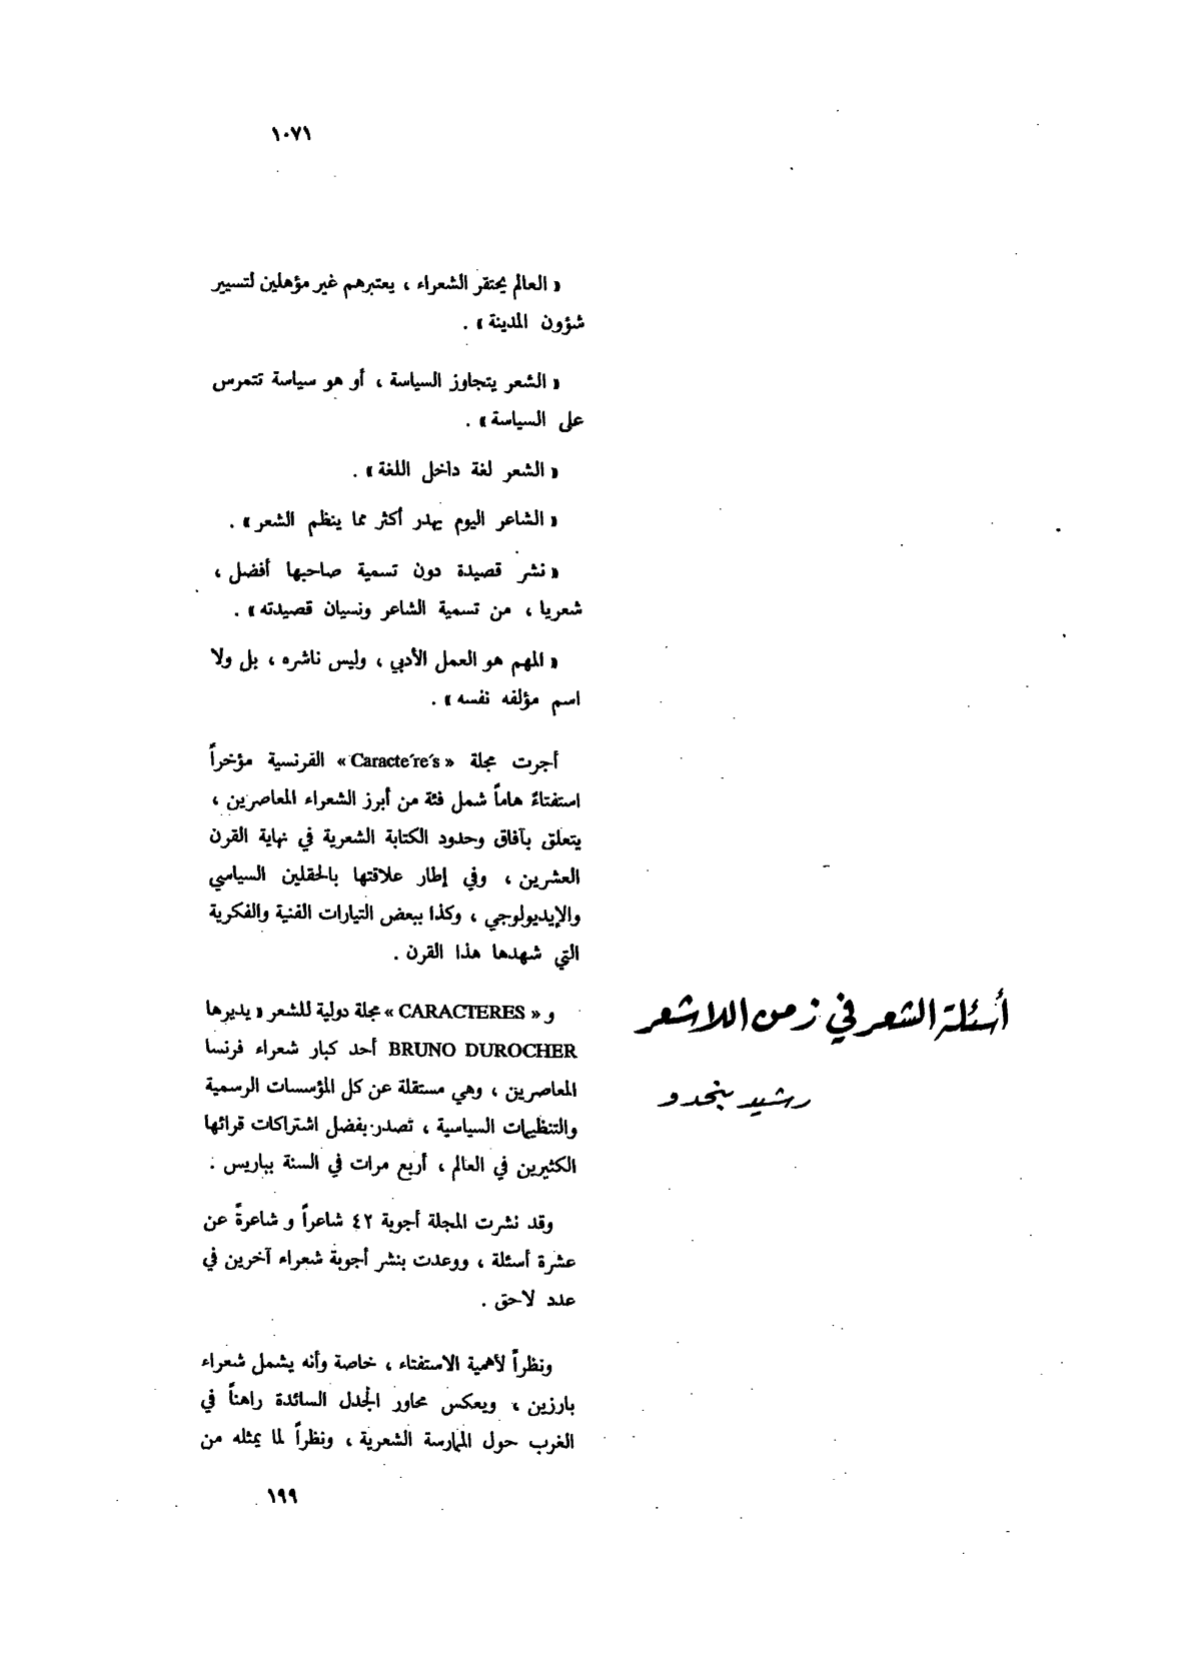 ١٠٧١
أسئلة الشعر في زمن اللاشعر
رشيد بنحدو
« العالم يحتقر الشعراء ، يعتبرهم غير مؤهلين لتسيير
شؤون المدينة » .
« الشعر يتجاوز السياسة ، أو هو سياسة تتمرس
على السياسة » .
« الشعر لغة داخل اللغة » .
« الشاعر اليوم يهدر أكثر مما ينظم الشعر » .
« نشر قصيدة دون تسمية صاحبها أفضل ،
شعريا ، من تسمية الشاعر ونسيان قصيدته » .
« المهم هو العمل الأدبي ، وليس ناشره ، بل ولا
اسم مؤلفه نفسه » .
أجرت مجلة « Caracte´re´s » الفرنسية مؤخراً
استفتاءً هاماً شمل فئة من أبرز الشعراء المعاصرين ،
يتعلق بآفاق وحدود الكتابة الشعرية في نهاية القرن
العشرين ، وفي إطار علاقتها بالحقلين السياسي
والإيديولوجي ، وكذا ببعض التيارات الفنية والفكرية
التي شهدها هذا القرن .
و « CARACTERES » مجلة دولية للشعر « يديرها
BRUNO DUROCHER أحد كبار شعراء فرنسا
المعاصرين ، وهي مستقلة عن كل المؤسسات الرسمية
والتنظيمات السياسية ، تصدر بفضل اشتراكات قرائها
الكثيرين في العالم ، أربع مرات في السنة بباريس .
وقد نشرت المجلة أجوبة ٤٢ شاعراً و شاعرةً عن
عشرة أسئلة ، ووعدت بنشر أجوبة شعراء آخرين في
عدد لاحق .
ونظراً لأهمية الاستفتاء ، خاصة وأنه يشمل شعراء
بارزين ، ويعكس محاور الجدل السائدة راهناً في
الغرب حول الممارسة الشعرية ، ونظراً لما يمثله من
١٩٩